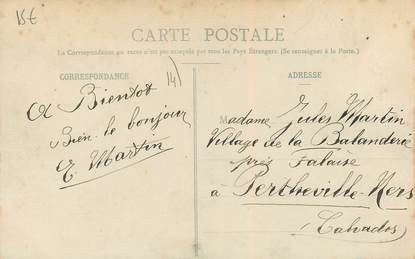 15€
CARTE POSTALE
La Correspondance au recto n'est pas acceptée par tous les Pays Étrangers. (Se renseigner à la Poste.)
CORRESPONDANCE
14)
A Bientot
Bien le bonjour
E Martin
ADRESSE
Madame Jules Martin
Village de la Balanderie
près Falaise
à Pertheville-Ners
(Calvados)